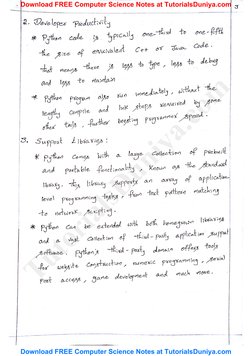 Download FREE Computer Science Notes at TutorialsDuniya.com
3
2. Developer Productivity
* Python code is typically one-third to one-fifth
the size of equivalent C++ or Java Code.
That means there is less to type, less to debug
and less to maintain
* Python program also run immediately, without the
lengthy compile and link steps required by some
other tools, further boosting programmer speed.
3. Support Libraries:
* Python comes with a large collection of prebuilt
and portable functionality, known as the standard
library. This library supports an array of application
level programming tasks, from text pattern matching
to network scripting.
* Python can be extended with both homegrown libraries
and a vast collection of third-party application support
software. Python's third-party domain offers tools
for website construction, numeric programming, serial
port access, game development and much more.
Download FREE Computer Science Notes at TutorialsDuniya.com